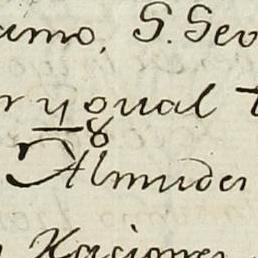 amo. S. Sev
r ygual t
Almudes
Raciones